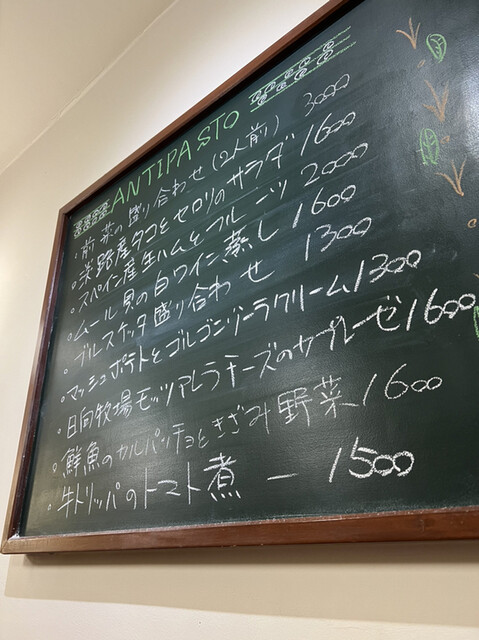 ANTIPASTO
・前菜の盛り合わせ(2人前) 3000
・淡路産タコとセロリのサラダ 1600
・スペイン産生ハムとフルーツ 2000
・ムール貝の白ワイン蒸し 1600
・ブルスケッタ盛り合わせ 1300
・マッシュポテトとゴルゴンゾーラクリーム 1300
・日向牧場モッツァレラチーズのカプレーゼ 1600
・鮮魚のカルパッチョときざみ野菜 1600
・牛トリッパのトマト煮 ー 1500